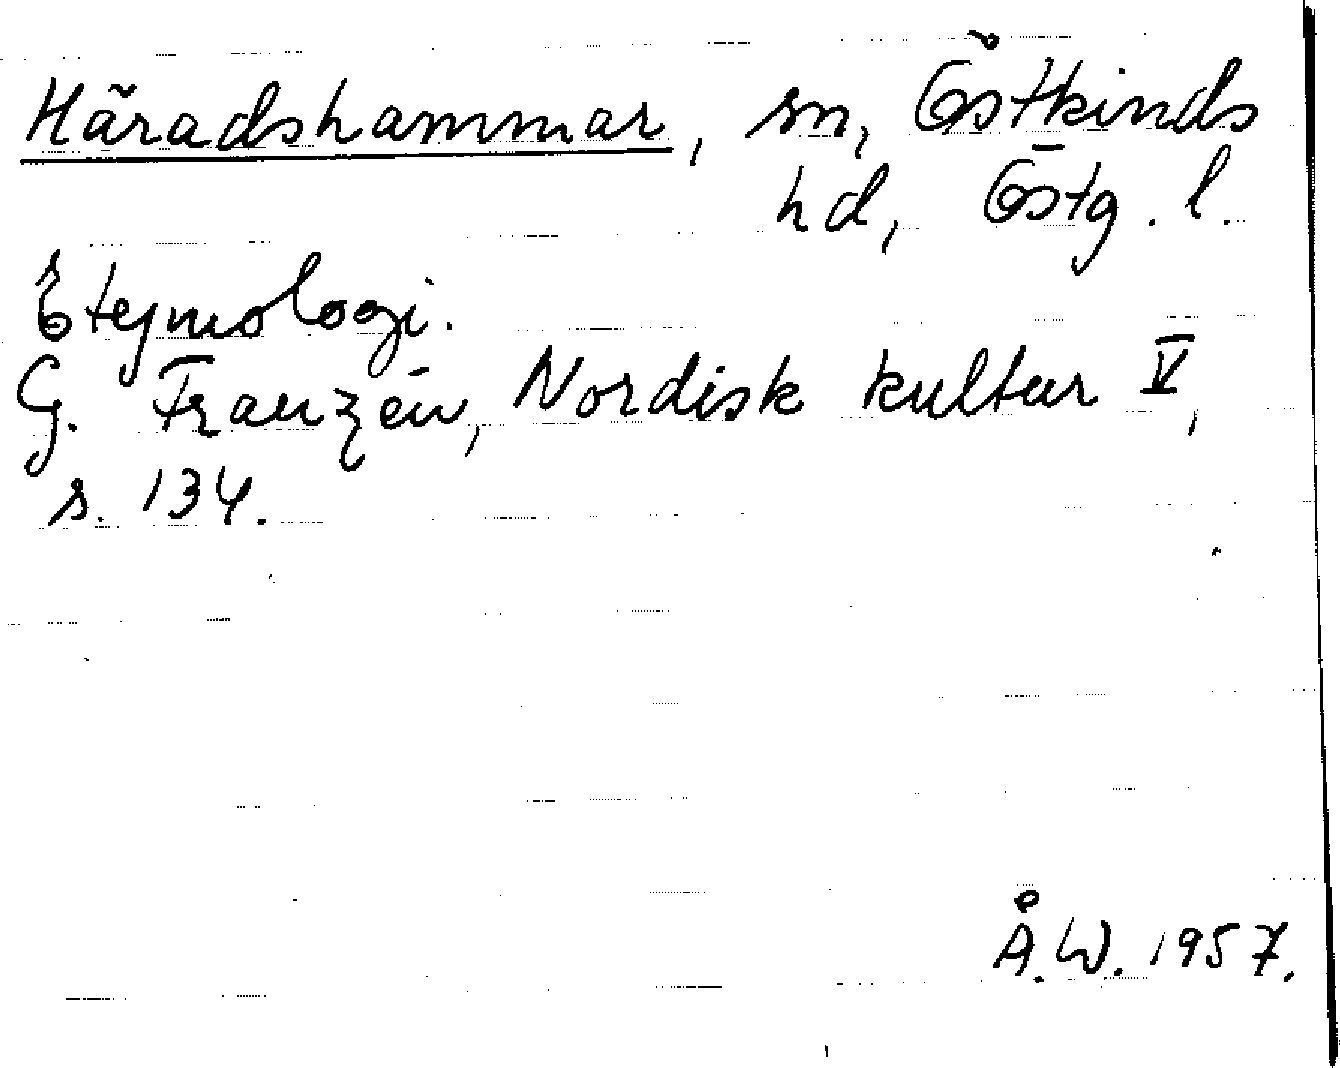 Häradshammar, sn, Östkinds
hd, Östg. l.
Etymologi.
G. Franzén, Nordisk kultur V,
s. 134.
Å.W. 1957.